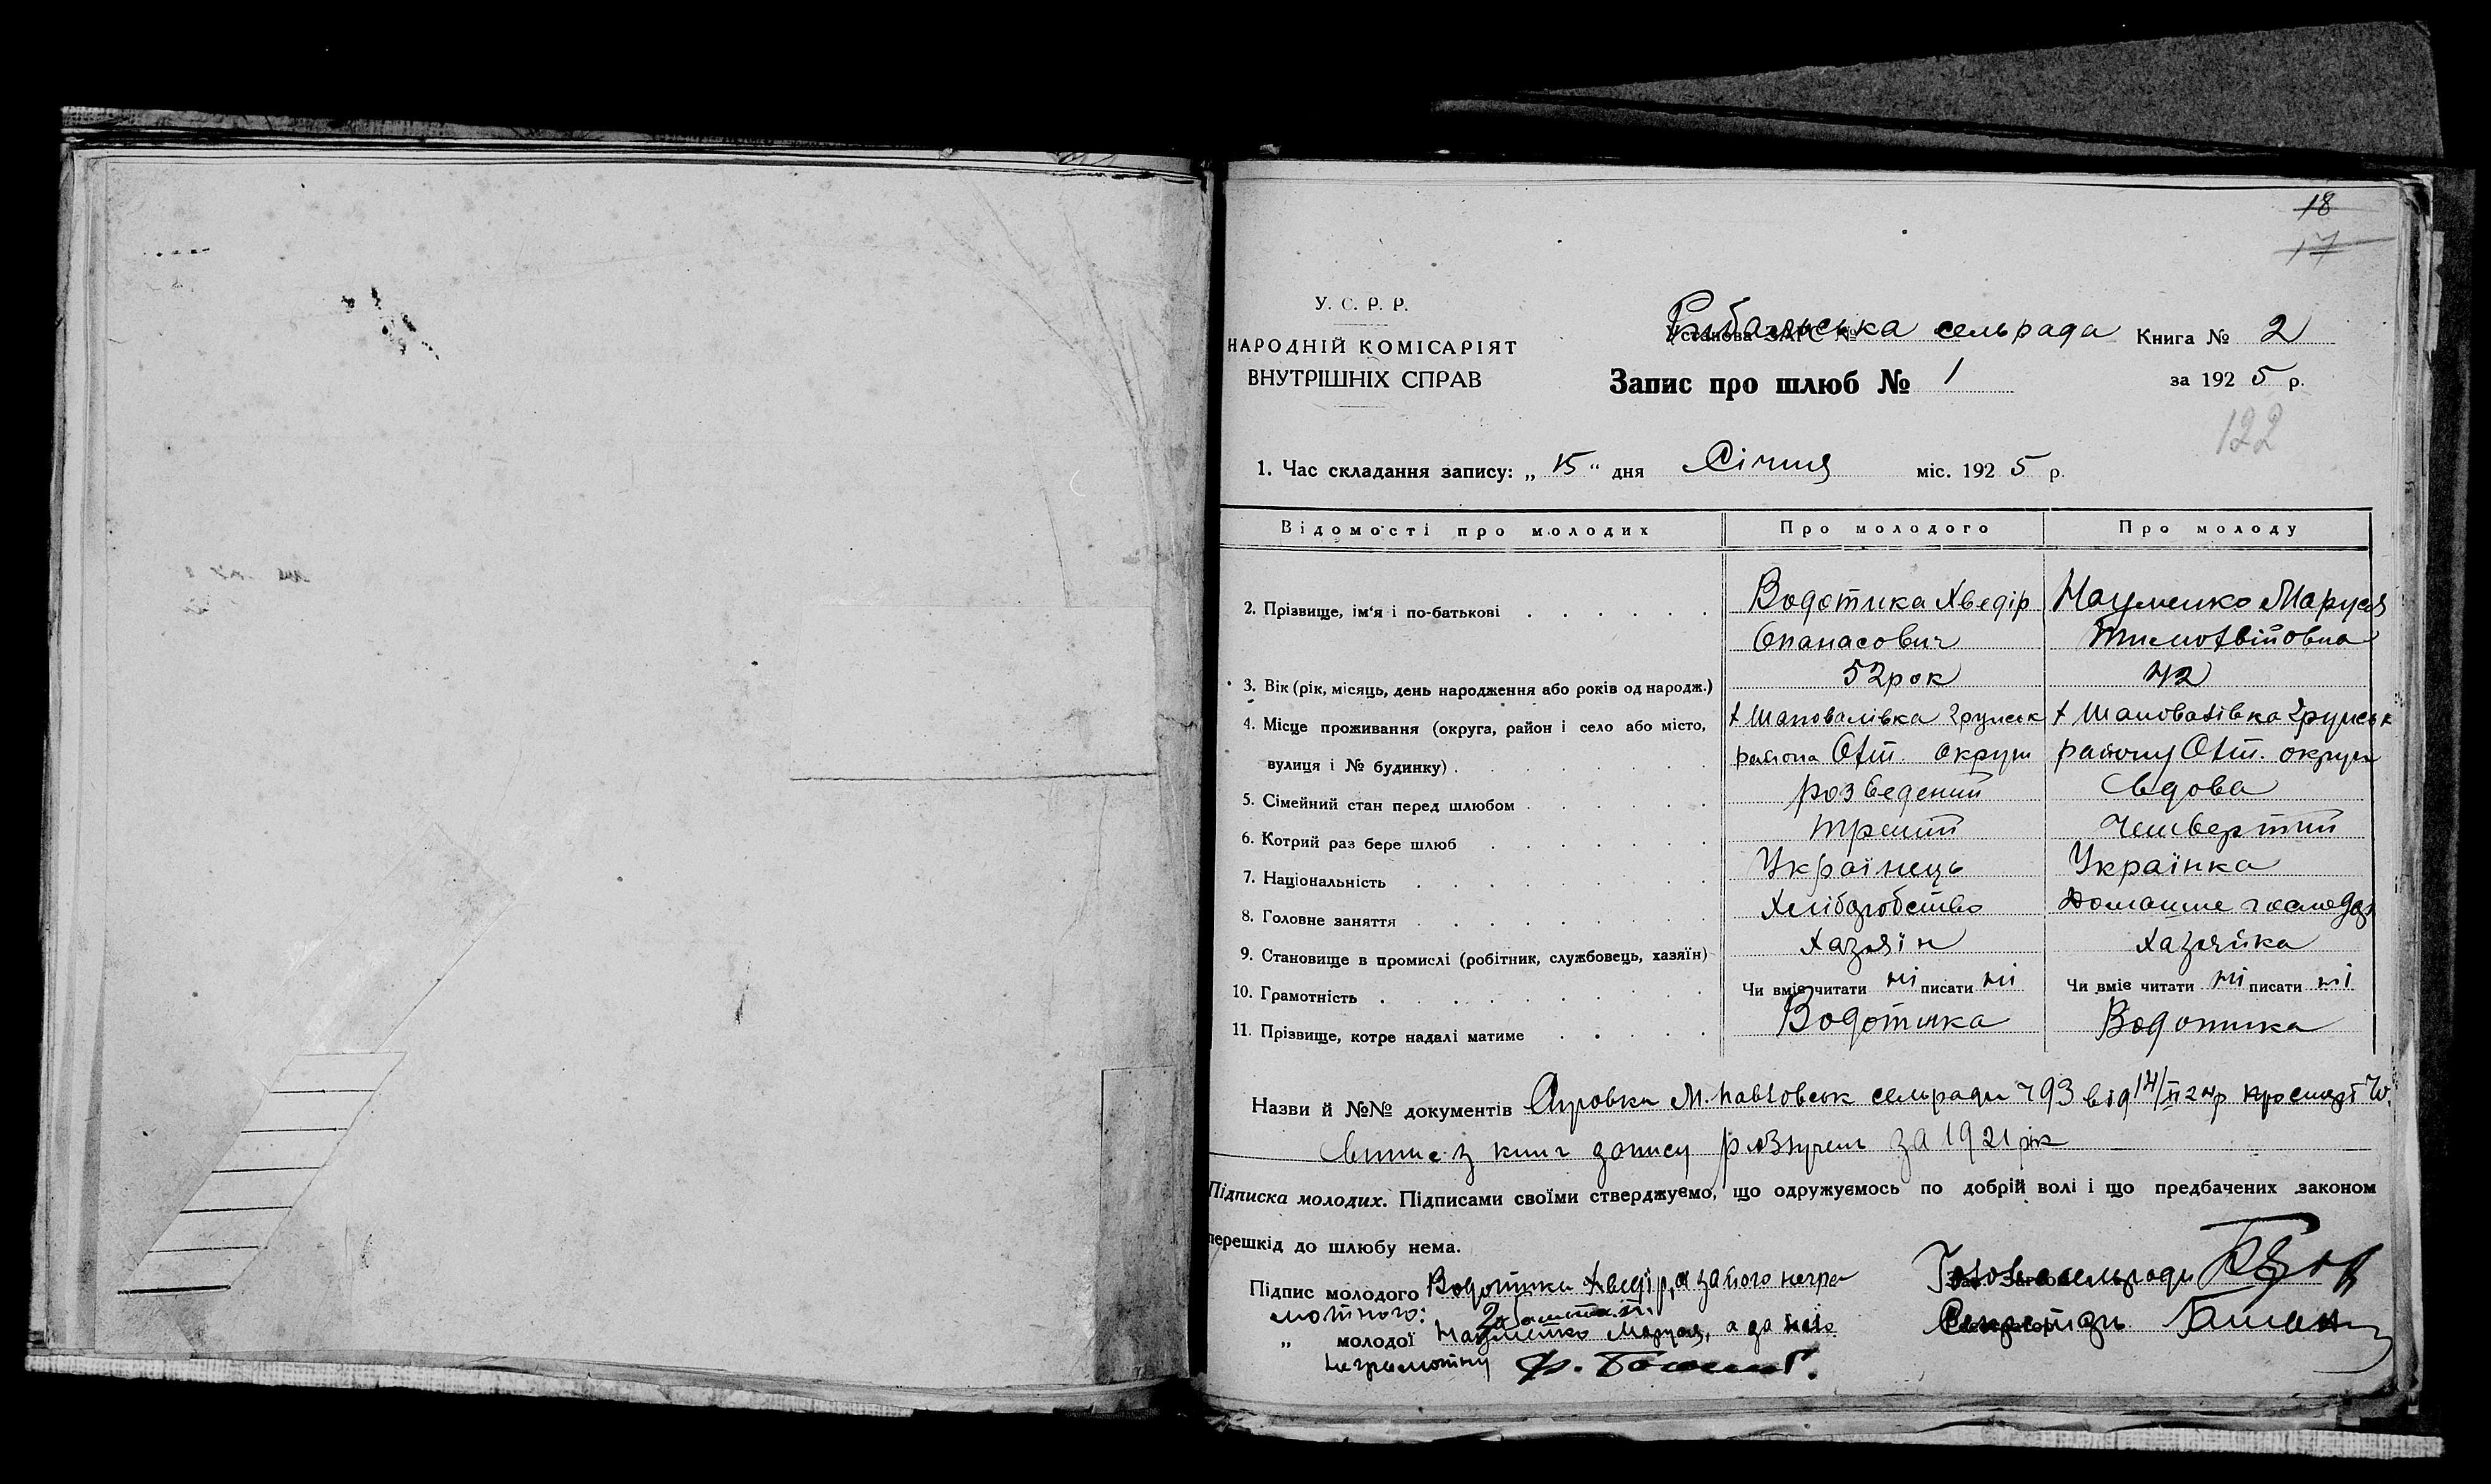 18
17
У. С. Р. Р.
НАРОДНІЙ КОМІСАРІЯТ
ВНУТРІШНІХ СПРАВ
Установа ЗАГС №
Рибальська сельрада Книга № 2
Запис про шлюб № 1 за 1925 р.
122
1. Час складання запису: „15" дня Січня міс. 1925 р.
Відомості про молодих Про молодого Про молоду
2. Прізвище, ім'я і по-батькові Водотика Хведір Науменко Маруся
Опанасович Тимохвійовна
3. Вік (рік, місяць, день народження або років од народж.) 52 рок 42
4. Місце проживання (округа, район і село або місто, х Шаповалівка Грунськ х Шаповалівка Грунськ
вулиця і № будинку) района Охт. округи району Охт. округи
5. Сімейний стан перед шлюбом розведений вдова
6. Котрий раз бере шлюб третій четвертий
7. Національність Українець Українка
8. Головне заняття Хліборобство Домашнє господар
9. Становище в промислі (робітник, службовець, хазяїн) Хазяїн Хазяйка
10. Грамотність Чи вміє читати ні писати ні Чи вміє читати ні писати ні
11. Прізвище, котре надалі матиме Водотика Водотика
Назви й №№ документів М. Павловськ сельради ч 93 від 14/II 24 р
Випис з книг запису розлучень за 1921 рік
Підписка молодих. Підписами своїми стверджуємо, що одружуємось по добрій волі і що предбачених законом
перешкід до шлюбу нема.
Підпис молодого Водотика Хведір, а за його негра
мотного:
Голова сельради
„ молодої Науменко Маруся, а за неї
Секретарь
неграмотну